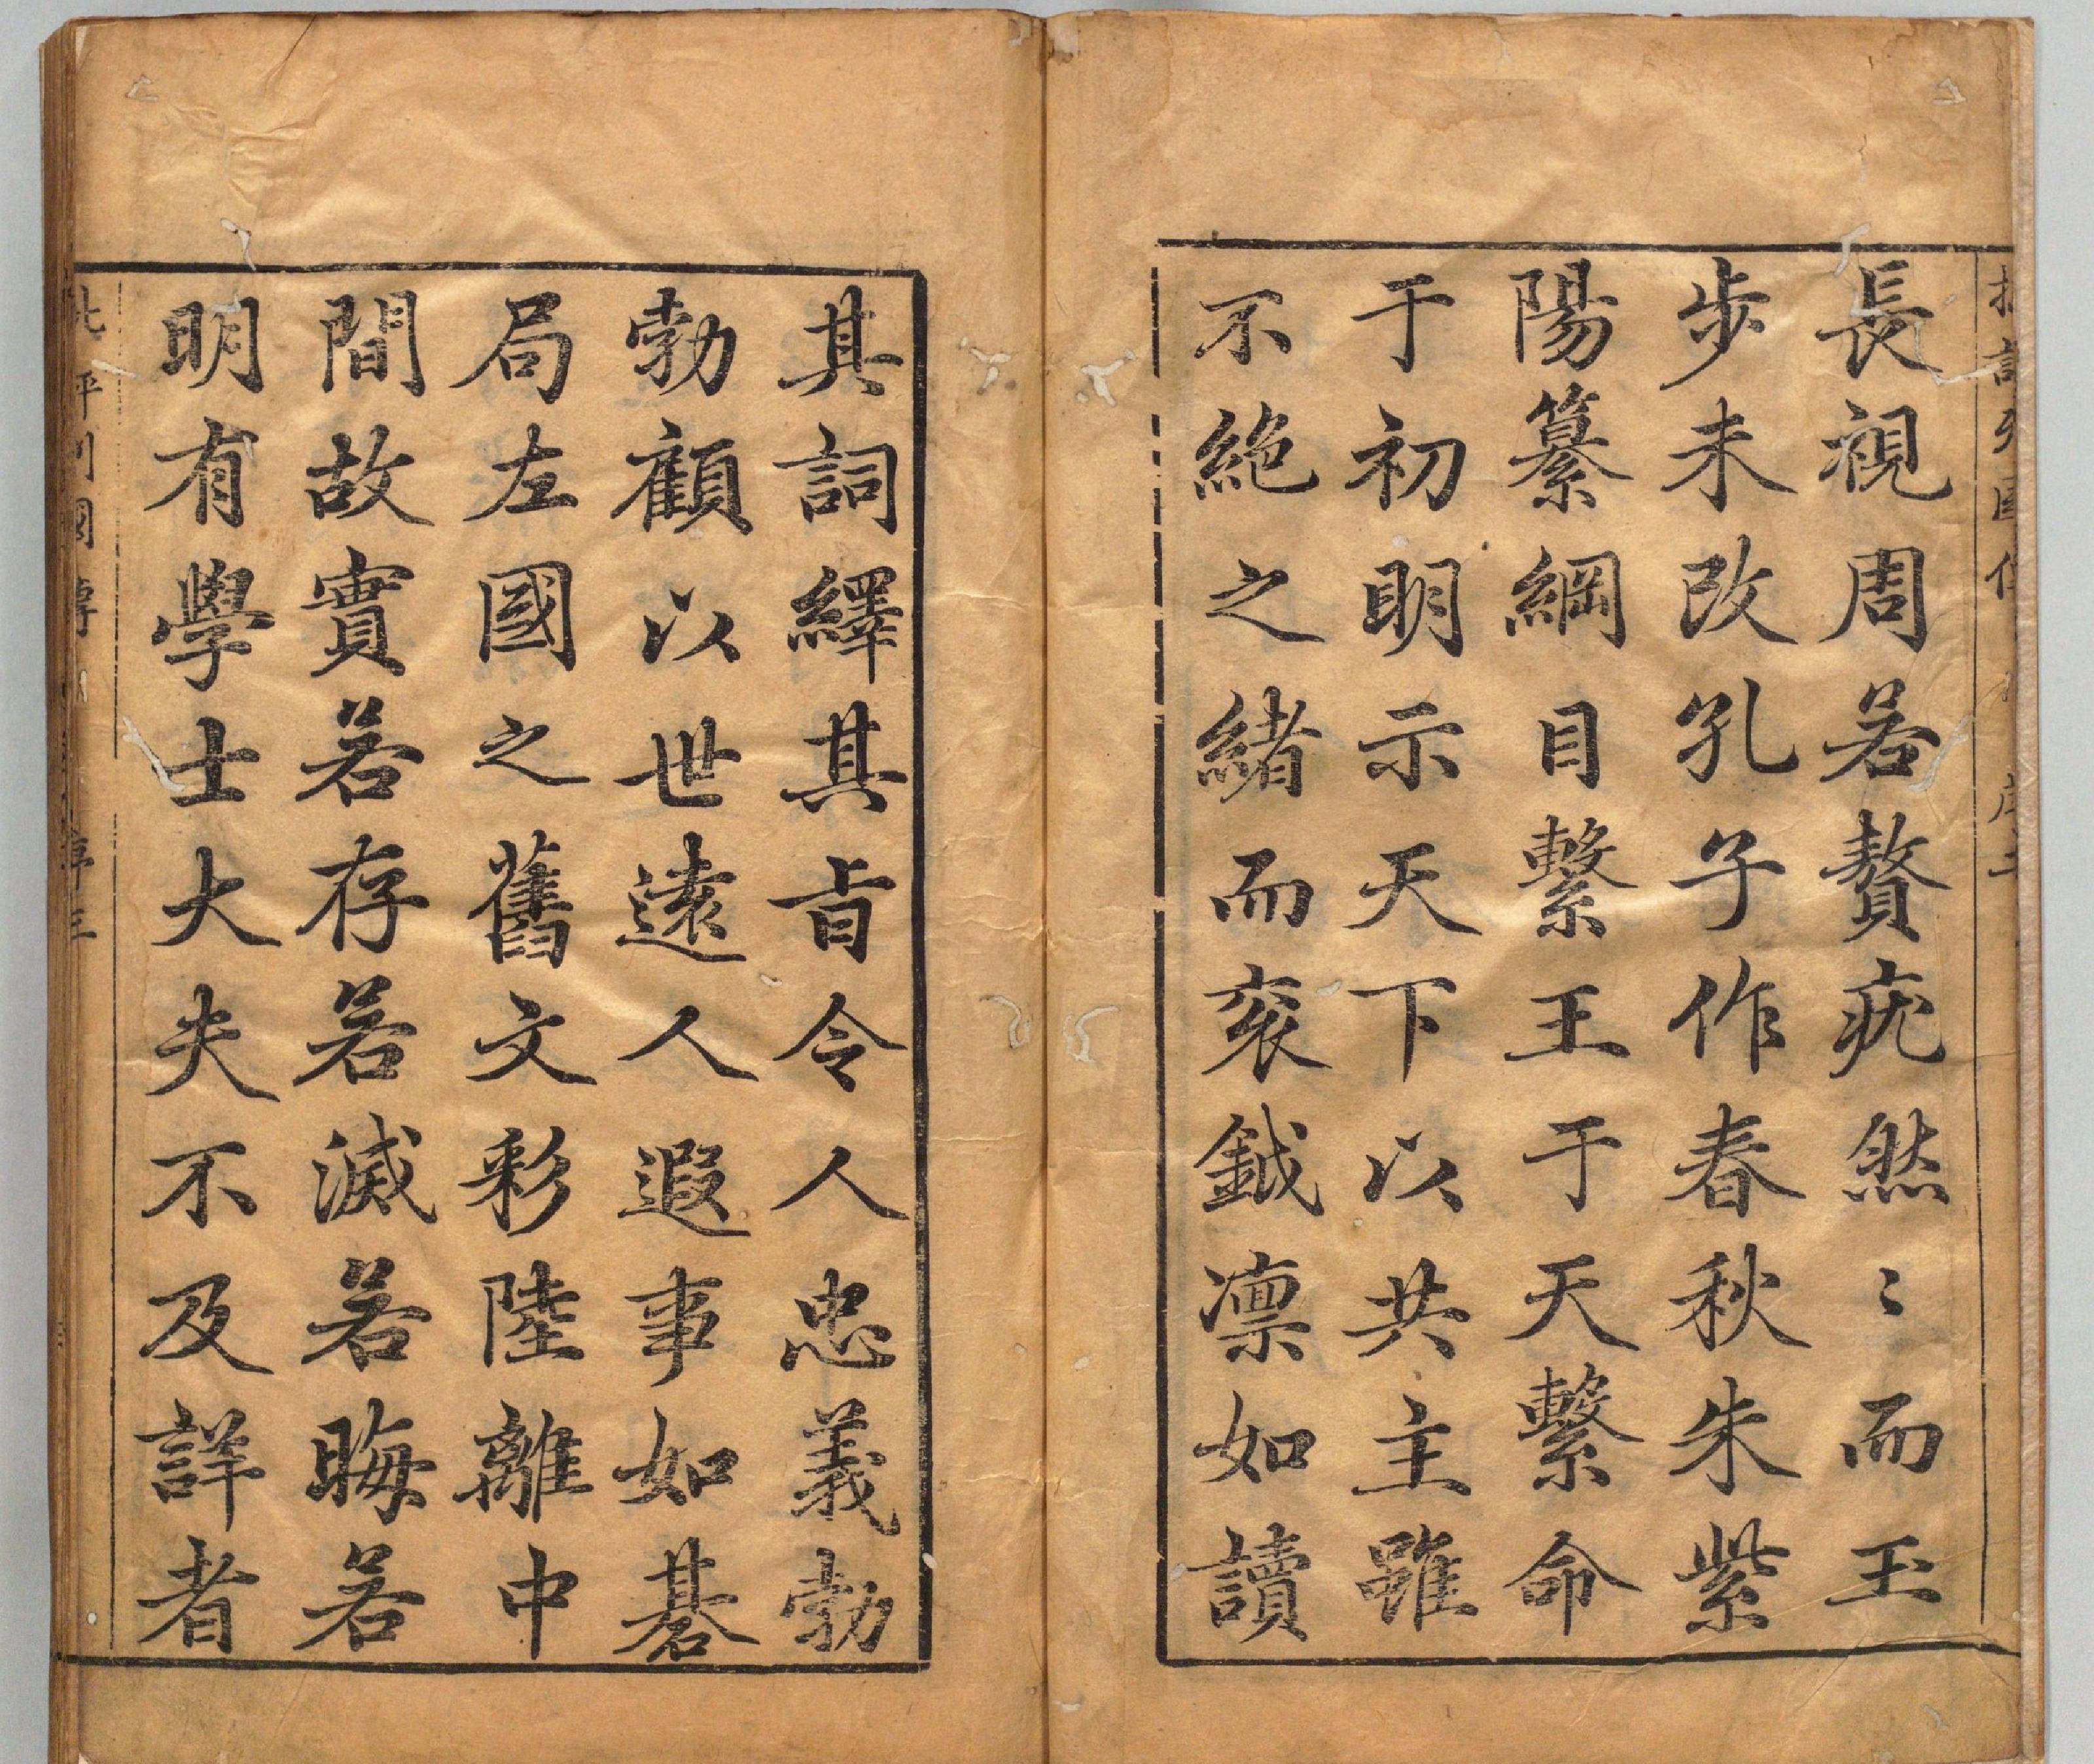 長視周若贅疣然〻而王
步未改孔子作春秋朱紫
陽纂綱目繫王于天繫命
于初明示天下以共主雖
不絶之緒而衮鉞凛如讀
其詞繹其旨令人忠義勃
勃顧以世遠人遐事如碁
局左國之舊文彩陸離中
間故實若存若滅若晦若
明有學士大夫不及詳者
批評列國傳 序三